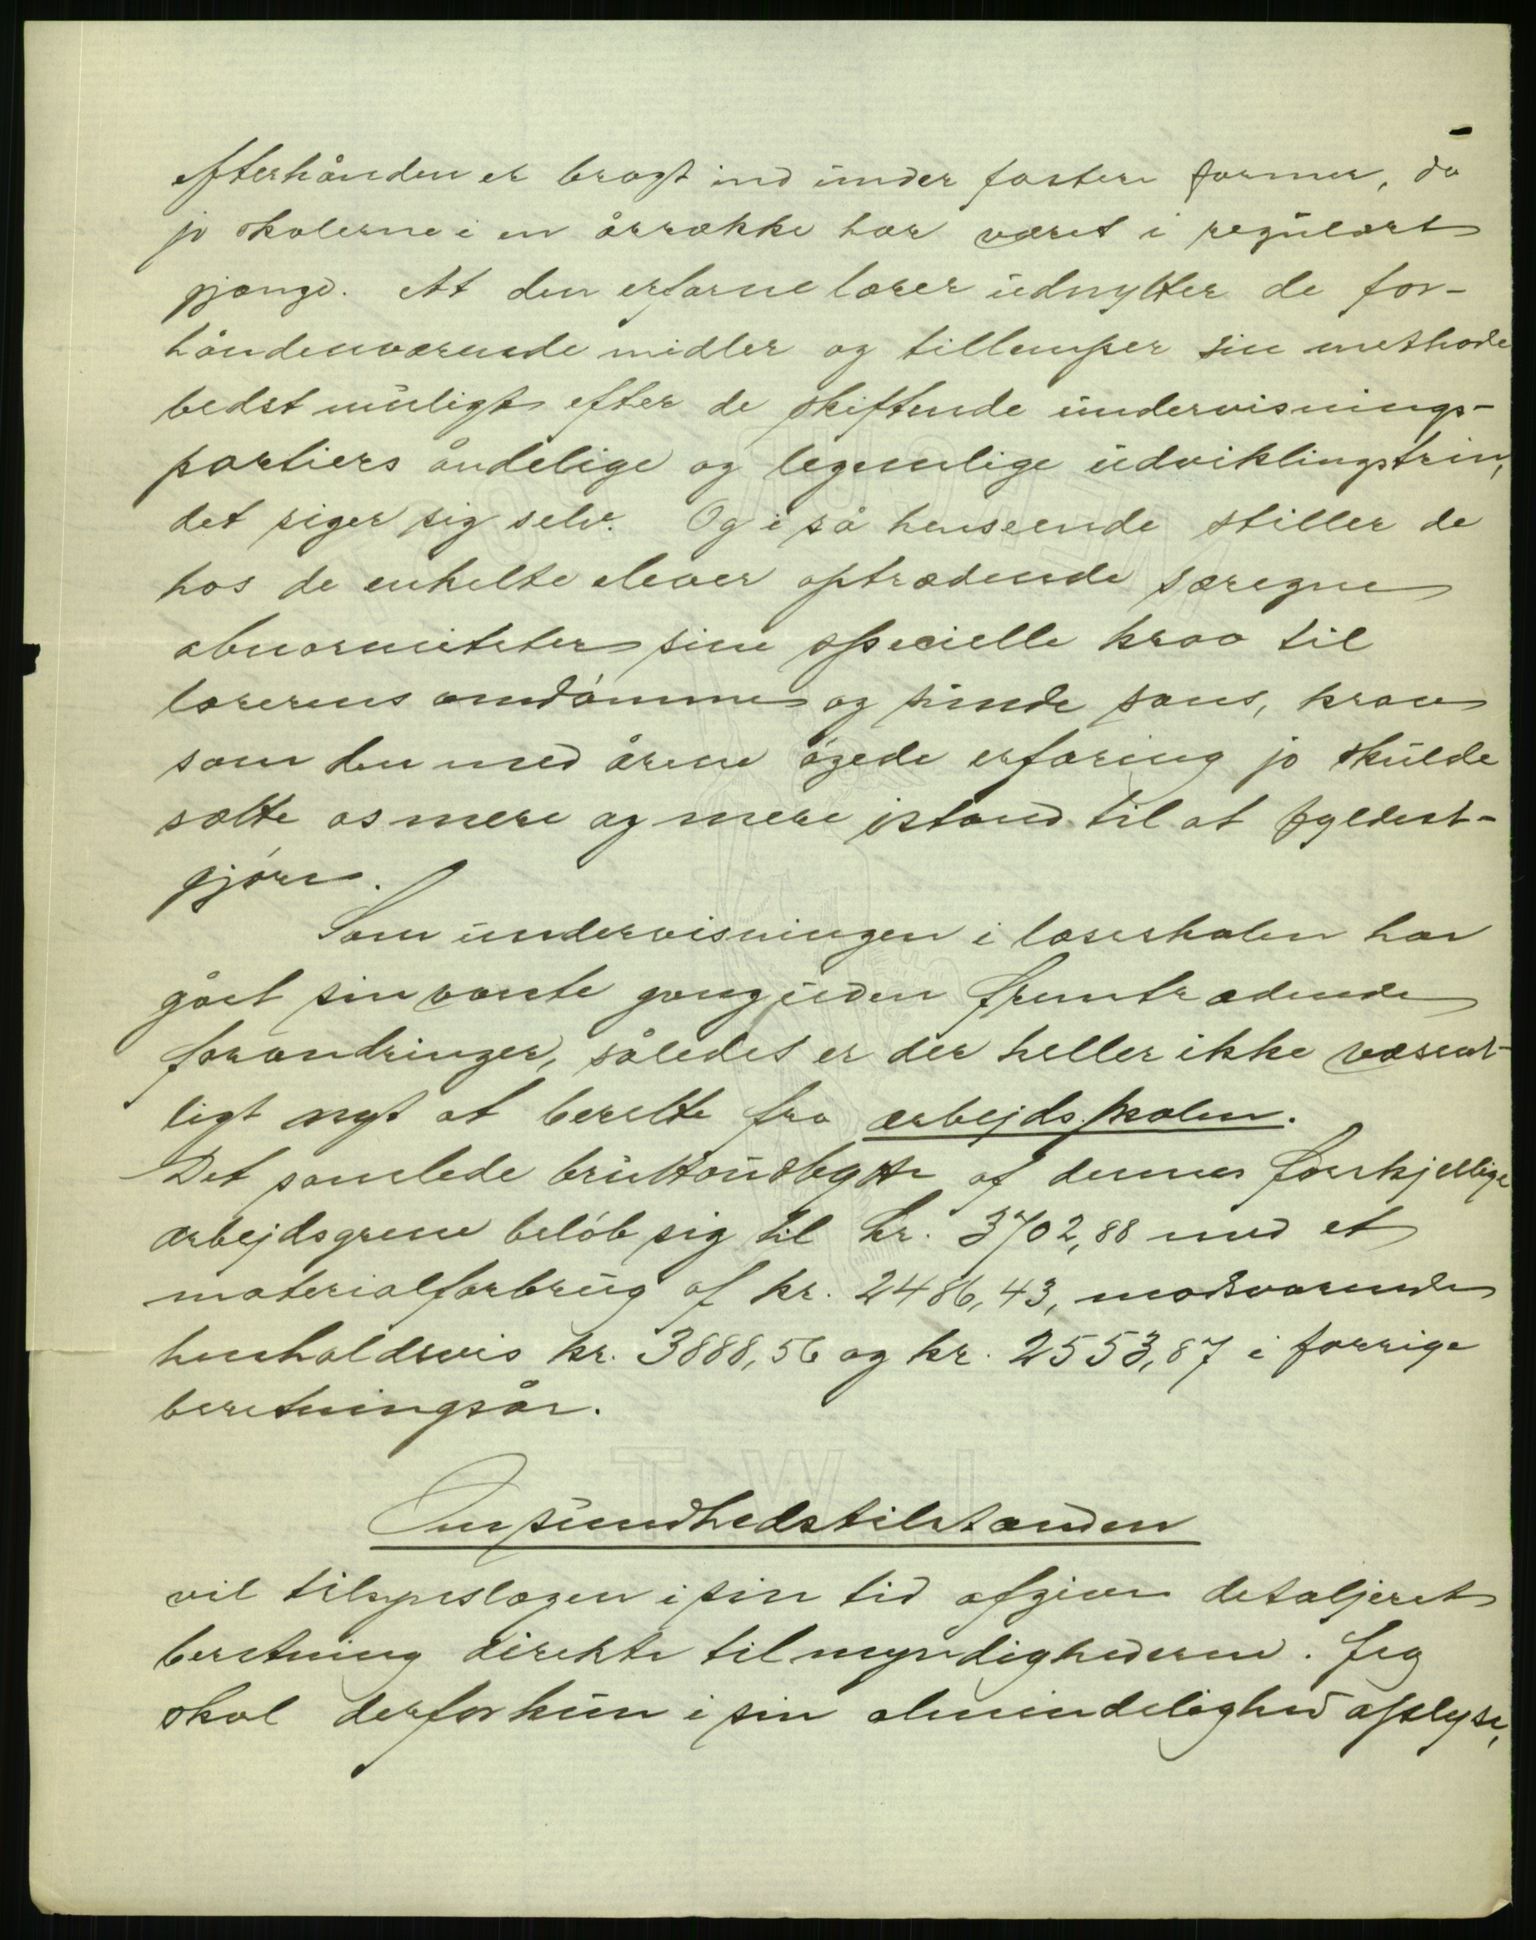 efterhånden er bragt ind under fastere former, da
jo skolerne i en årrække har været i regulært
gjænge. At den erfarne lærer udnytter de for-
håndenværende midler og tillemper sin methode
bedst muligt efter de skiftende undervisnings-
partiers åndelige og legemlige udviklingstrin,
det siger sig selv. Og i så henseende stiller de
hos de enkelte elever optrædende særegne
abnormiteter sine specielle krav til
lærerens omdømme og sunde sans, krav
som den med årene øgede erfaring jo skulde
sætte os mere og mere istand til at fyldest-
gjøre.
Som undervisningen i læseskolen har
gået sin vante gang uden fremtrædende
forandringer, således er der heller ikke væsent-
ligt nyt at berette fra arbejdsskolen.
Det samlede bruttoudbytte af dennes forskjellige
arbejdsgrene beløb sig til kr. 3702,88 med et
materialforbrug af kr. 2486,43, modsvarende
henholdsvis kr. 3888,56 og kr. 2553,87 i forrige
beretningsår.
Om sundhedstilstanden
vil tilsynslægen i sin tid afgive detaljeret
beretning direkte til myndighederne. Jeg
skal derfor kun i sin almindelighed oplyse,
L W T